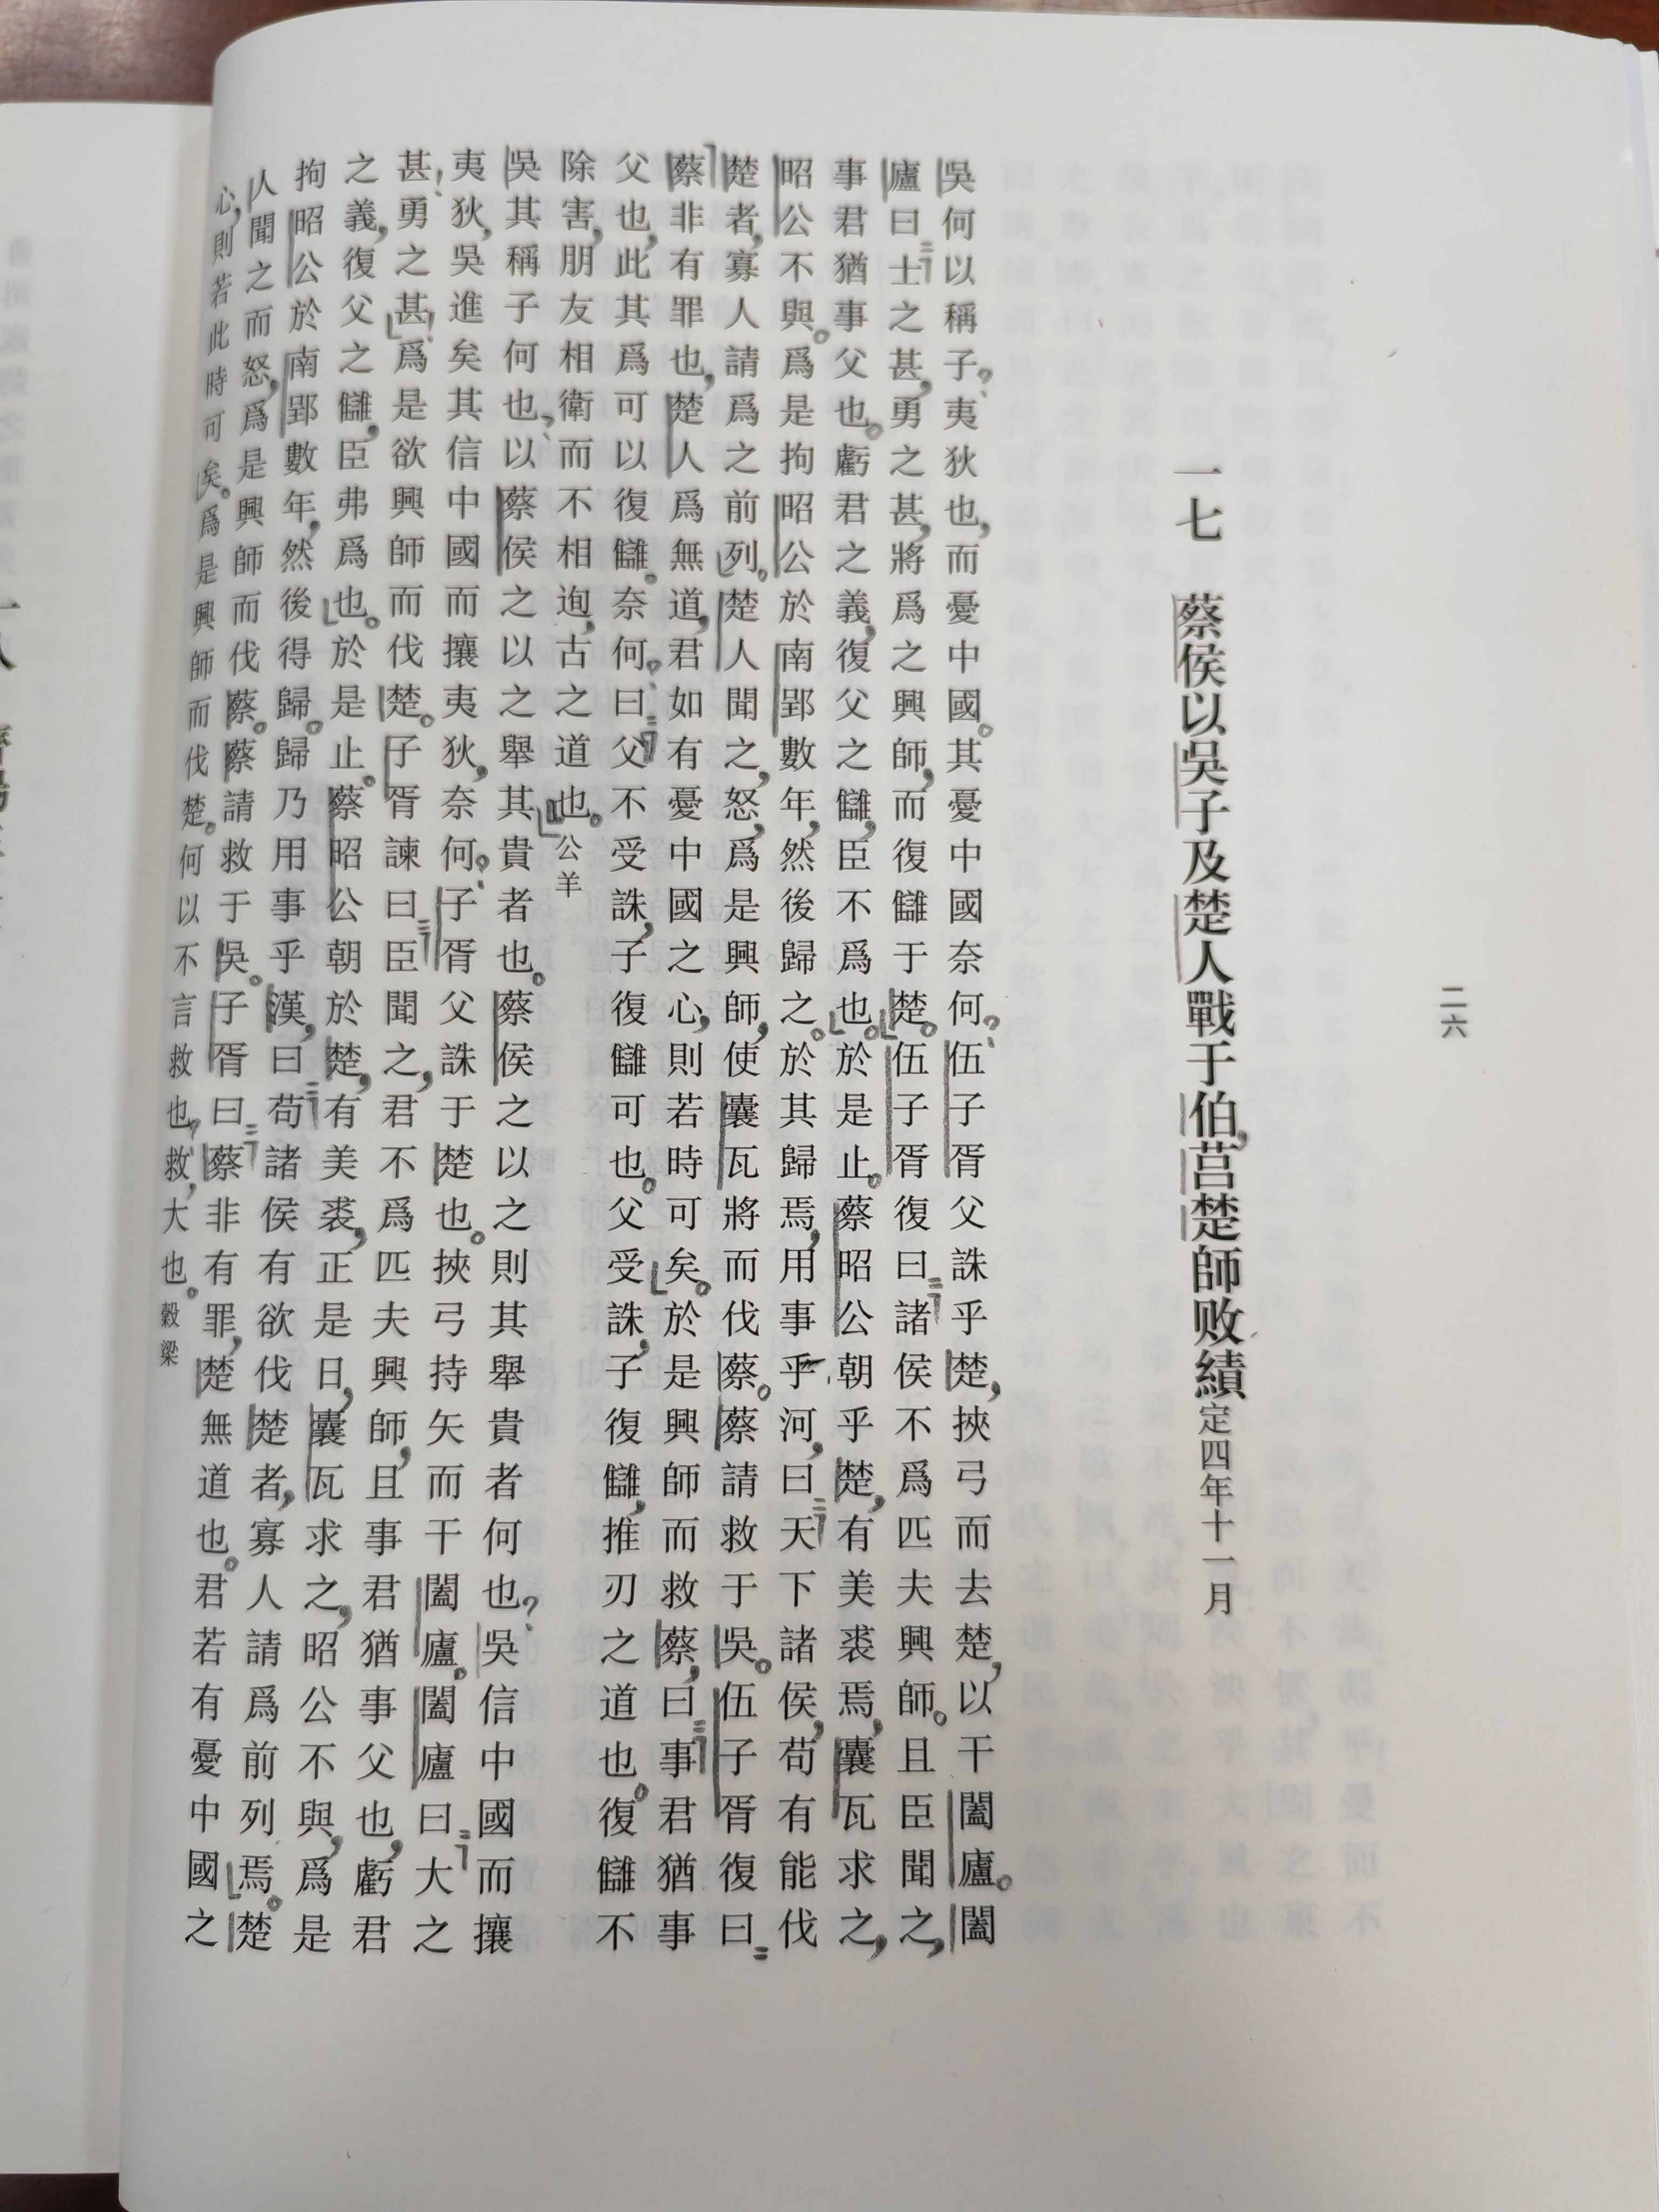 二六
一七　蔡侯以吳子及楚人戰于伯，莒楚師败績定四年十一月
吳何以稱子？夷狄也，而憂中國。其憂中國奈何？伍子胥父誅乎楚，挾弓而去楚，以干闔廬。闔
廬曰：「士之甚，勇之甚，將爲之興師，而復讎于楚。」伍子胥復曰：「諸侯不爲匹夫興師。且臣聞之，
事君猶事父也。虧君之義，復父之讎，臣不爲也。」於是止。蔡昭公朝乎楚，有美裘焉，囊瓦求之，
昭公不與。爲是拘昭公於南郢數年，然後歸之。於其歸焉，用事乎河，曰：「天下諸侯，苟有能伐
楚者，寡人請爲之前列。」楚人聞之，怒，爲是興師，使囊瓦將而伐蔡。蔡請救于吳。伍子胥復曰：
「蔡非有罪也，楚人爲無道，君如有憂中國之心，則若時可矣。」於是興師而救蔡，曰：「事君猶事
父也，此其爲可以復讎。奈何？曰：「父不受誅，子復讎可也。父受誅，子復讎，推刃之道也。復讎不
除害，朋友相衛而不相迿，古之道也。」公羊
吳其稱子何也？以蔡侯之以之舉其貴者也。蔡侯之以之則其舉貴者何也？吳信中國而攘
夷狄，吳進矣其信中國而攘夷狄，奈何？子胥父誅于楚也。挾弓持矢而干闔廬。闔廬曰：「大之
甚！勇之甚！」爲是欲興師而伐楚。子胥諫曰：「臣聞之，君不爲匹夫興師，且事君猶事父也，虧君
之義，復父之讎，臣弗爲也。」於是止。蔡昭公朝於楚，有美裘，正是日，囊瓦求之，昭公不與，爲是
拘昭公於南郢數年，然後得歸。歸乃用事乎漢，曰：「苟諸侯有欲伐楚者，寡人請爲前列焉。」楚
人聞之而怒，爲是興師而伐蔡。蔡請救于吳。子胥曰：「蔡非有罪，楚無道也。君若有憂中國之
心，則若此時可矣。」爲是興師而伐楚。何以不言救也？救，大也。穀梁